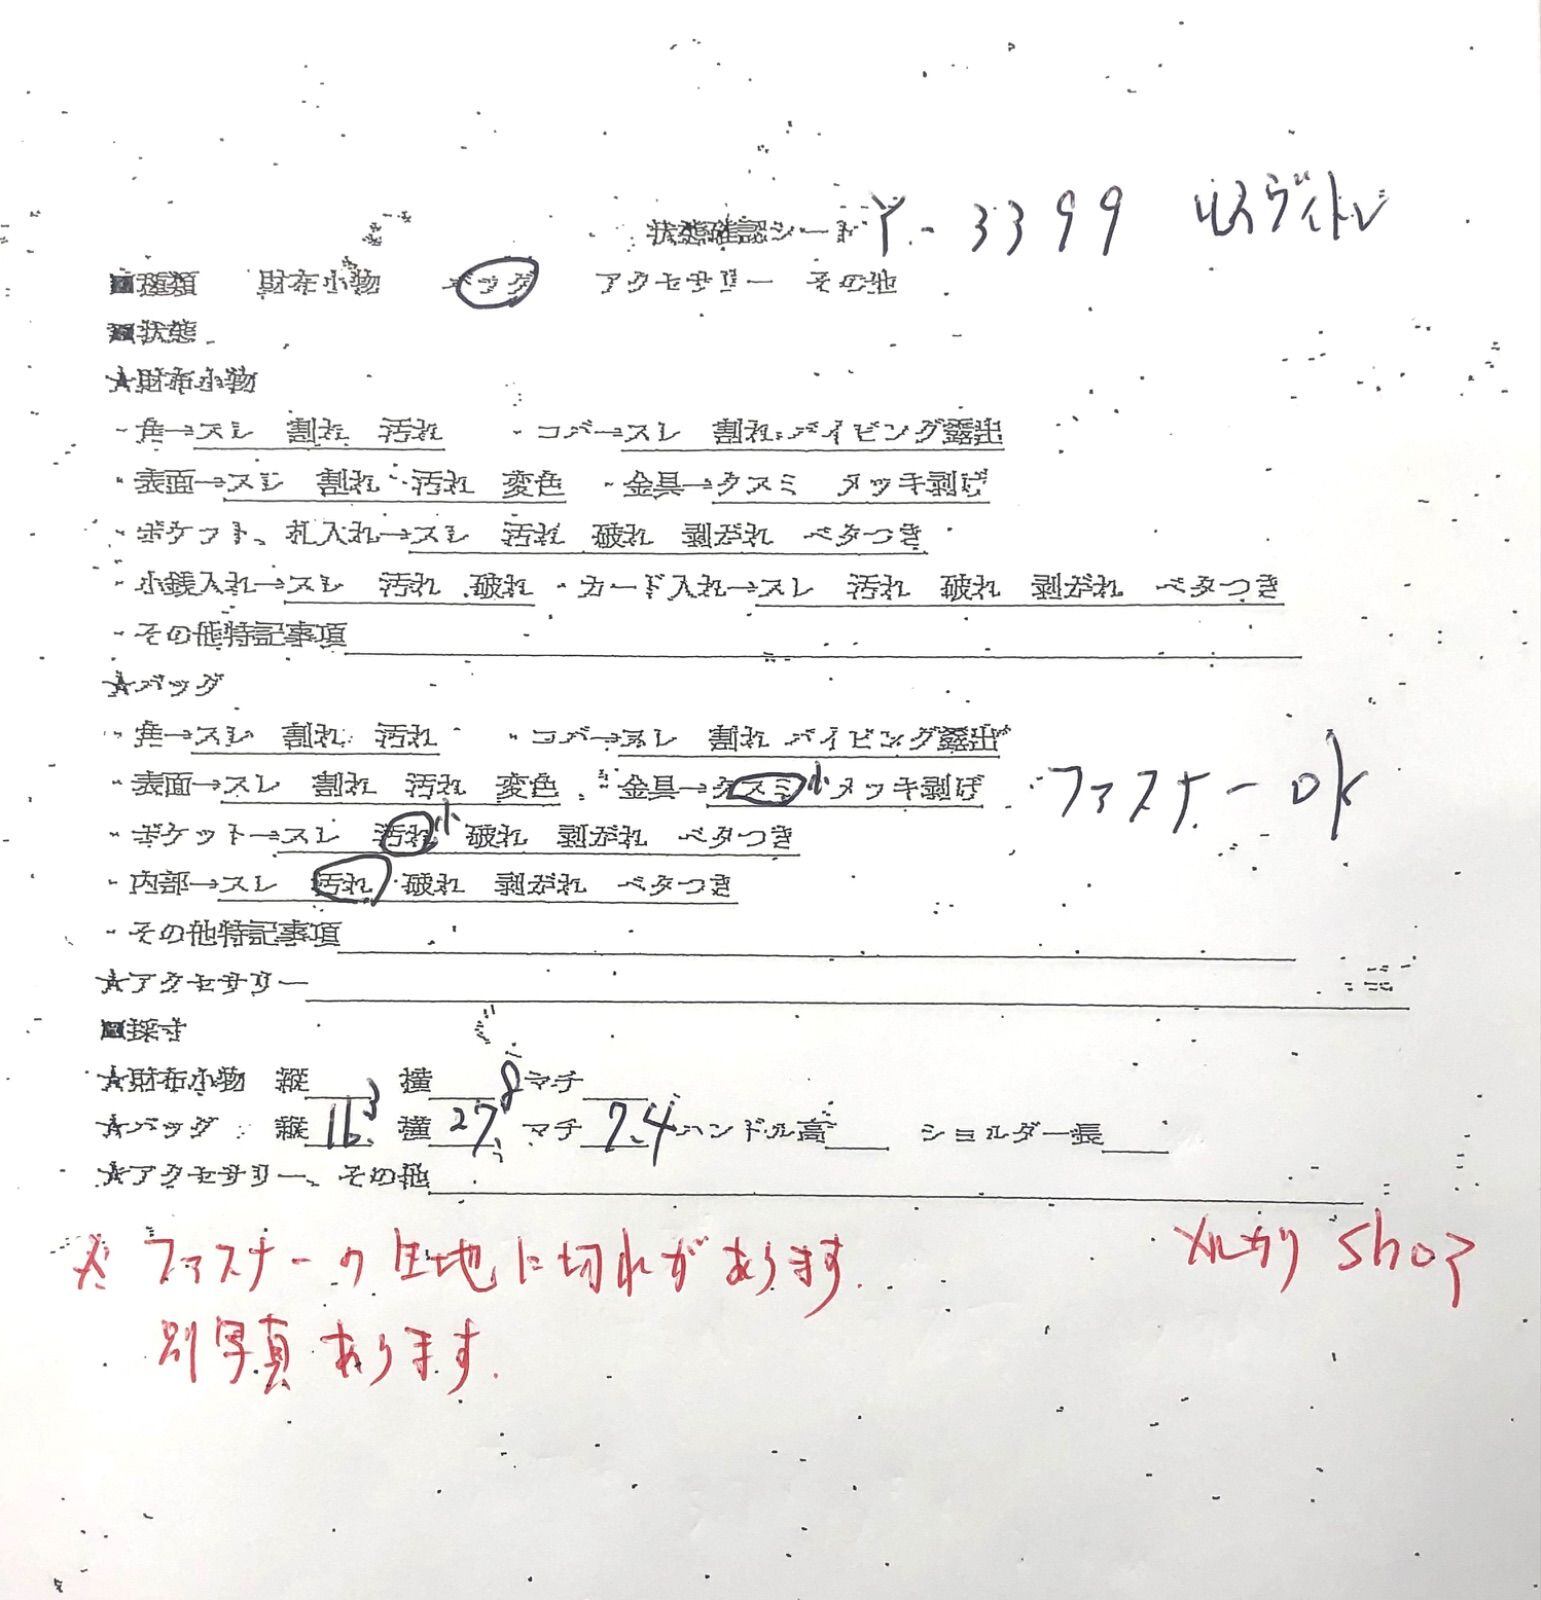 状態確認シート Y-3399 ルイヴィトン
■種類 財布小物 バッグ アクセサリー その他
■状態
★財布小物
・角→スレ 割れ 汚れ ・コバ→スレ 割れ パイピング露出
・表面→スレ 割れ 汚れ 変色 ・金具→クスミ メッキ剥げ
・ポケット、札入れ→スレ 汚れ 破れ 剥がれ ベタつき
・小銭入れ→スレ 汚れ 破れ ・カード入れ→スレ 汚れ 破れ 剥がれ ベタつき
・その他特記事項
★バッグ
・角→スレ 割れ 汚れ ・コバ→スレ 割れ パイピング露出
・表面→スレ 割れ 汚れ 変色 ・金具→クスミ 小 メッキ剥げ ファスナーOK
・ポケット→スレ 汚れ 小 破れ 剥がれ ベタつき
・内部→スレ 汚れ 破れ 剥がれ ベタつき
・その他特記事項
★アクセサリー
■採寸
★財布小物 縦 横 マチ
★バッグ 縦 16.3 横 27.8 マチ 7.4 ハンドル高 ショルダー長
★アクセサリー、その他
※ファスナーの生地に切れがあります. メルカリ shop
別写真あります.